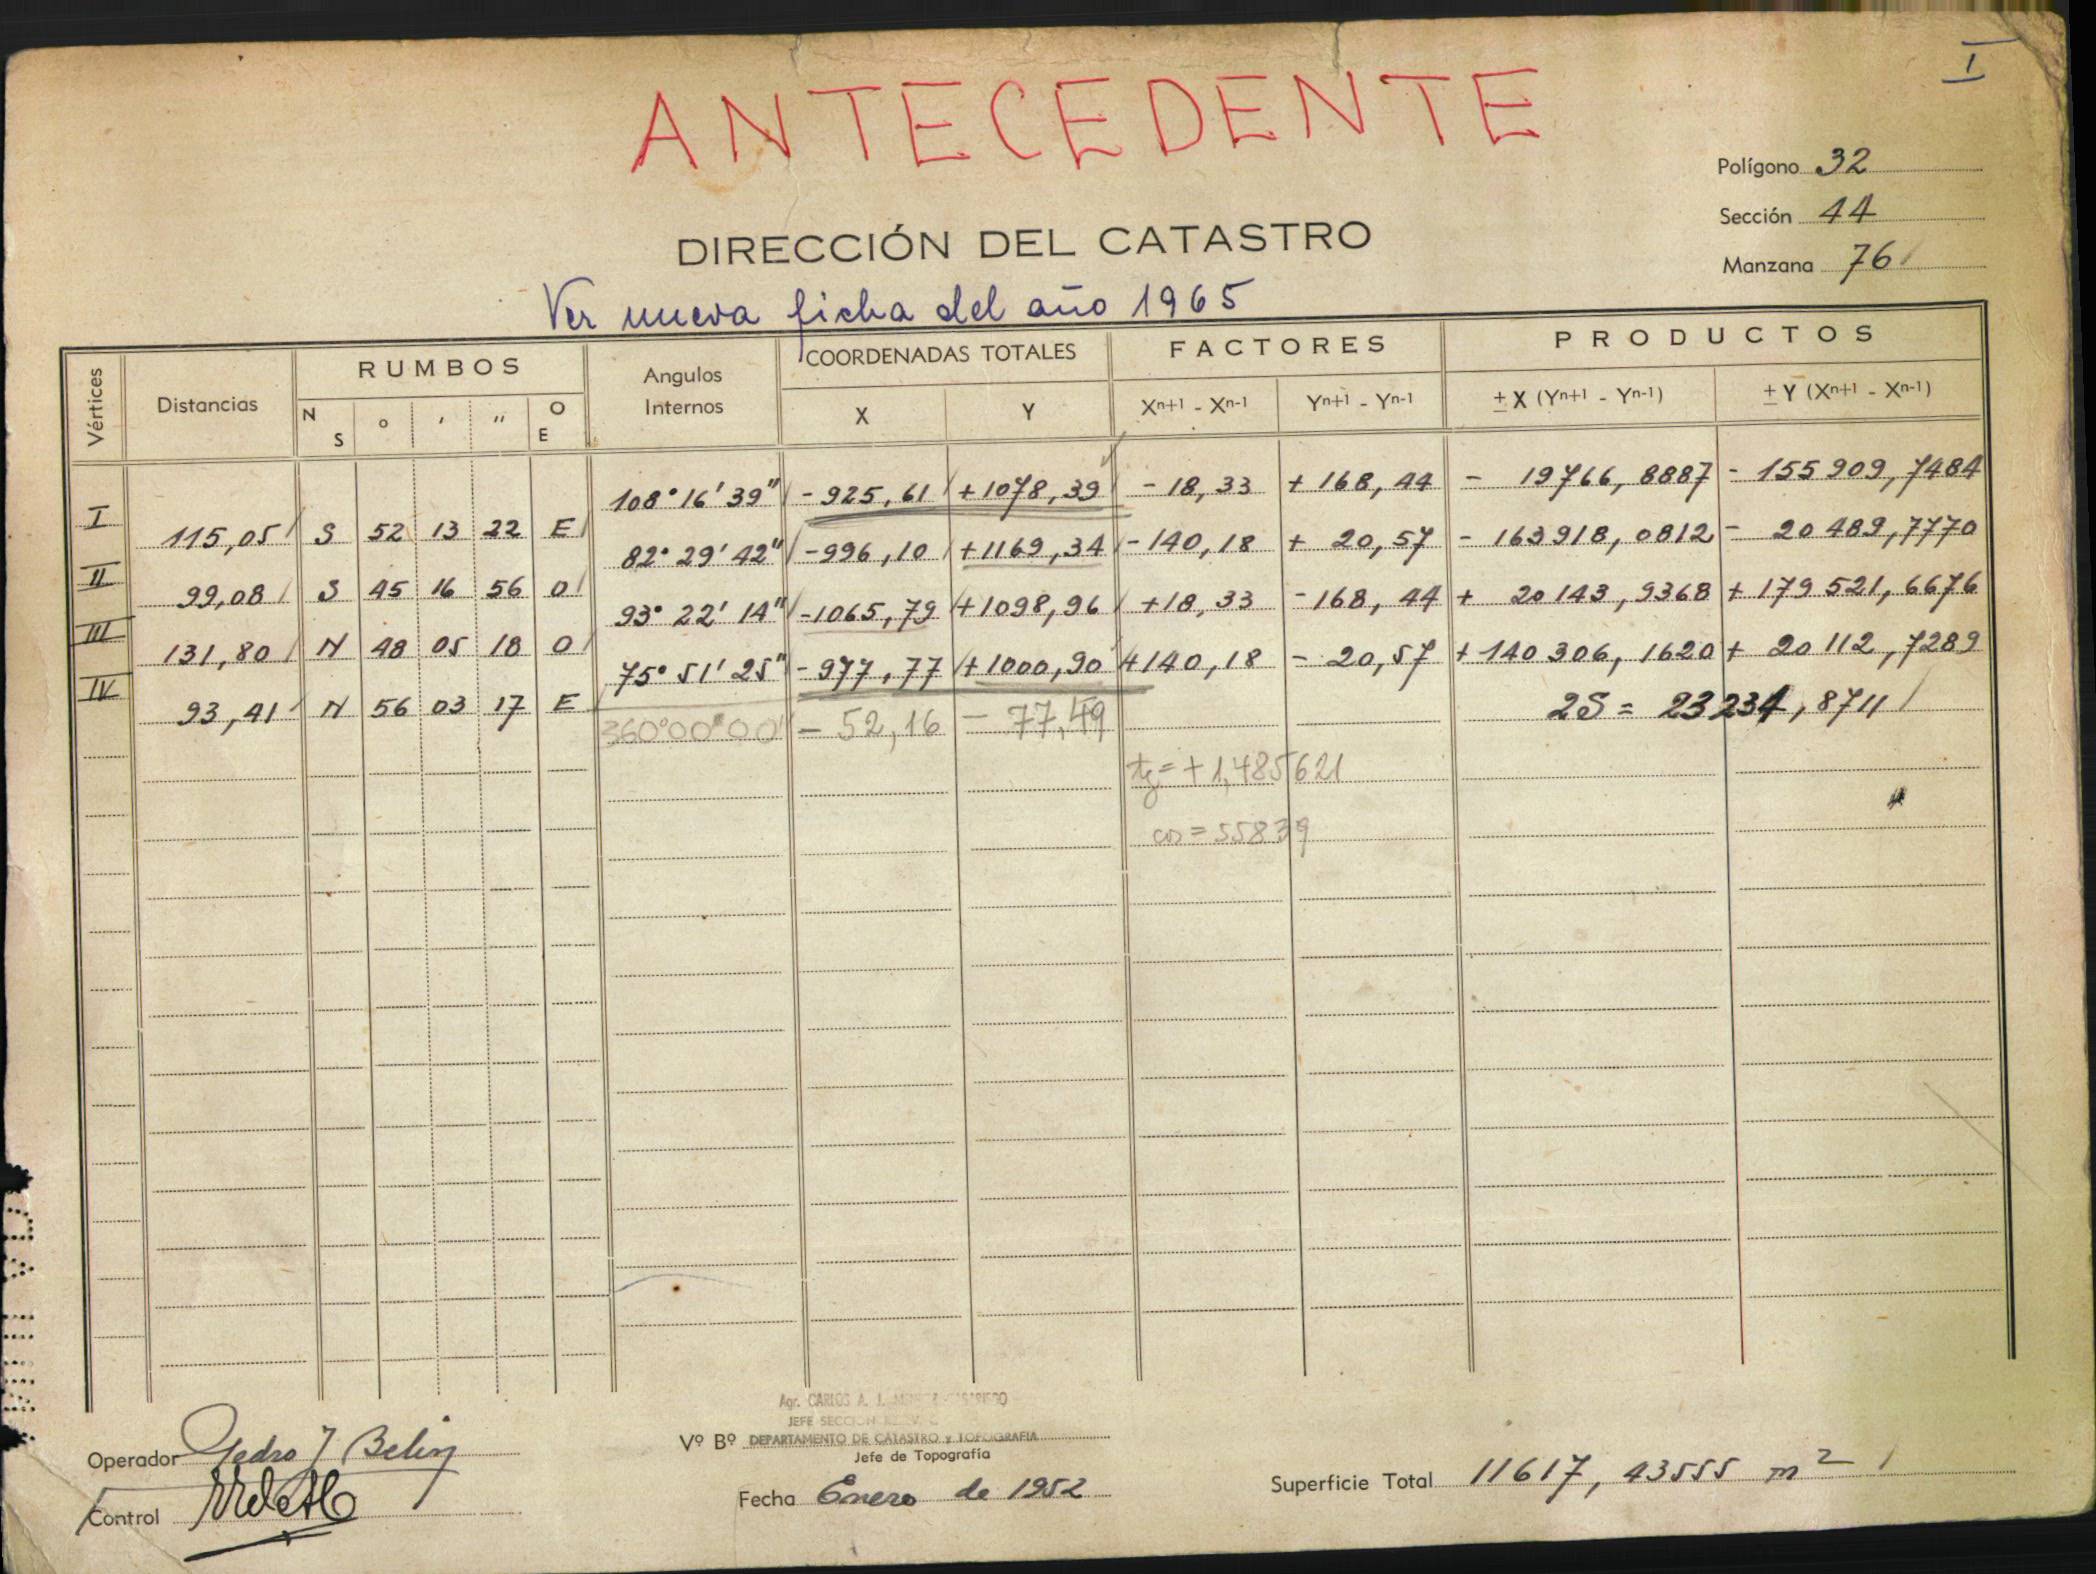 I
ANTECEDENTE
Polígono 32
Sección 44
Manzana 76
DIRECCIÓN DEL CATASTRO
Ver nueva ficha del año 1965
Vértices Distancias RUMBOS Angulos Internos COORDENADAS TOTALES FACTORES PRODUCTOS
N S ° ' " O E X Y Xn+1 - Xn-1 Yn+1 - Yn-1 ± X (Yn+1 - Yn-1) ± Y (Xn+1 - Xn-1)
108° 16' 39" - 925,61 + 1078,39 - 18,33 + 168,44 - 19766,8887 - 155909,7484
I 115,05 S 52 13 22 E
82° 29' 42" - 996,10 + 1169,34 - 140,18 + 20,57 - 163918,0812 - 20489,7770
II 99,08 S 45 16 56 O
93° 22' 14" - 1065,79 + 1098,96 + 18,33 - 168,44 + 20143,9368 + 179521,6676
III 131,80 N 48 05 18 O
75° 51' 25" - 977,77 + 1000,90 + 140,18 - 20,57 + 140306,1620 + 20112,7289
IV 93,41 N 56 03 17 E
360°00'00" - 52,16 - 77,49 2S = 23234,8711
tg = + 1,485621
cos = 55839
Agr. CARLOS A. J.
JEFE SECCION
Operador Pedro J Belin
Vº Bº DEPARTAMENTO DE CATASTRO y TOPOGRAFIA
Jefe de Topografía
Control
Fecha Enero de 1952
Superficie Total 11617,43555 m2